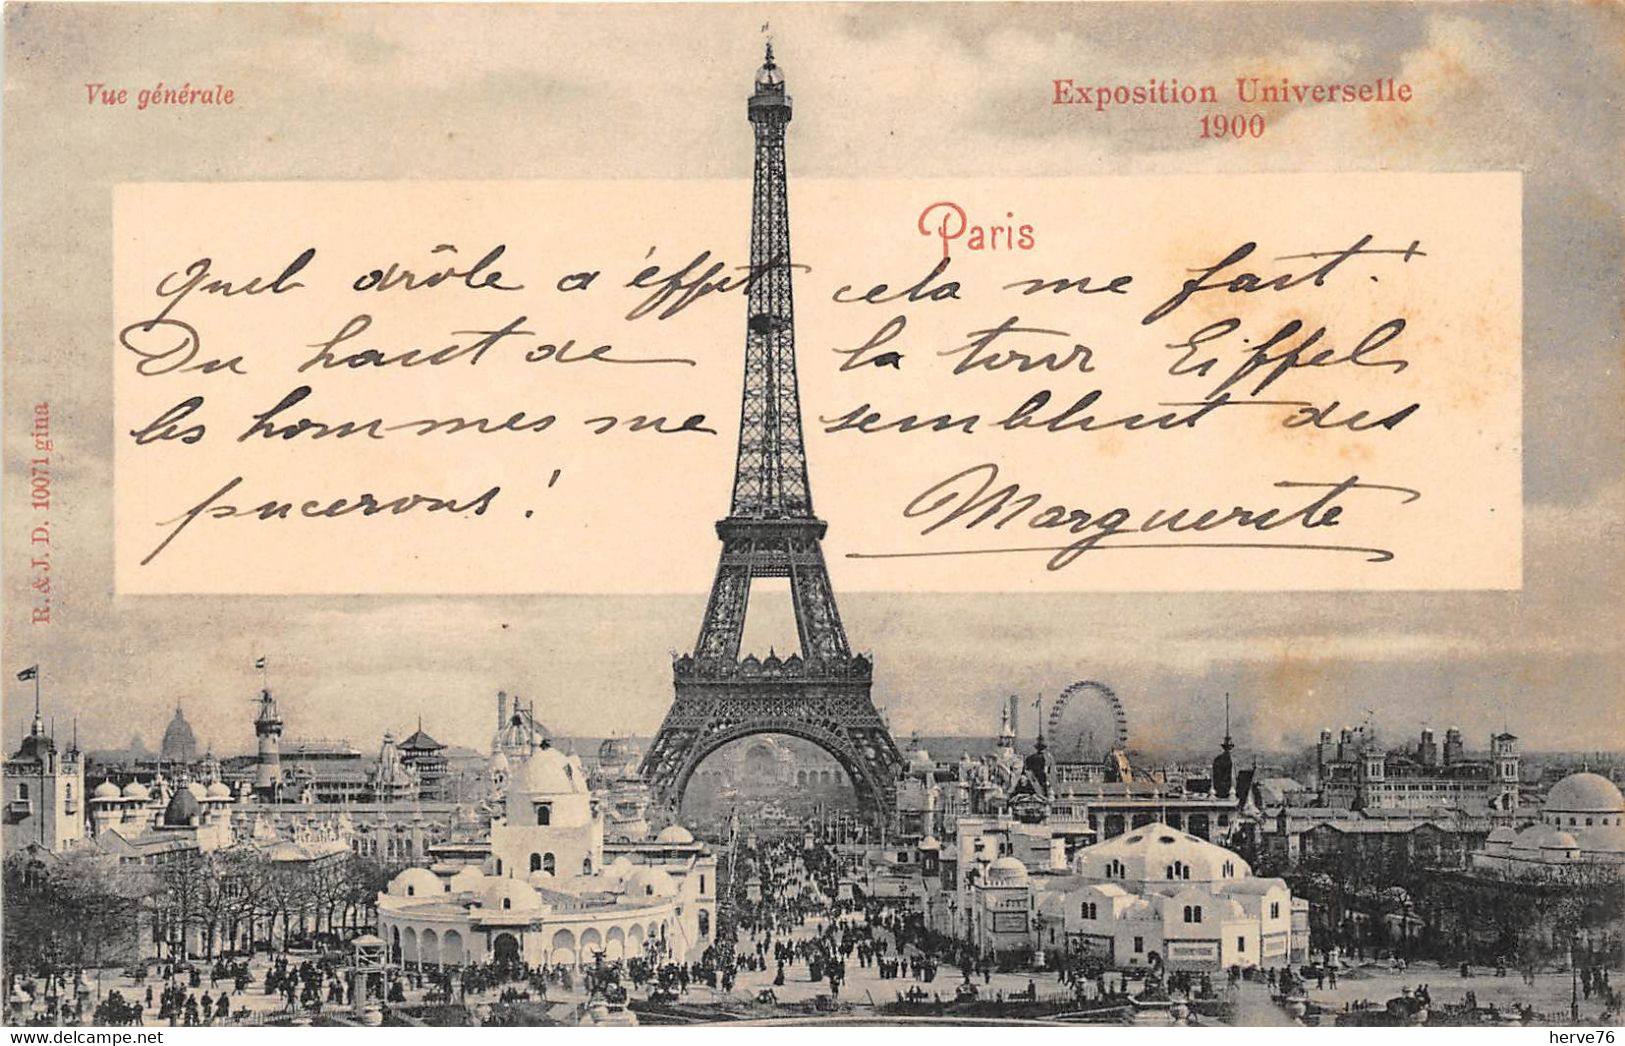 Vue générale
Exposition Universelle
1900
Paris
Quel drôle d'effet cela me fait!
Du haut de la tour Eiffel
les hommes me semblent des
pucerons!
Marguerite
R. & J. D. 10071 gina
delcampe.net
herve76